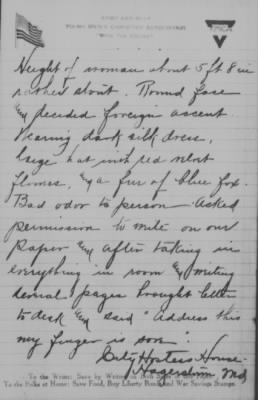 ARMY AND NAVY
YOUNG MEN'S CHRISTIAN ASSOCIATION
"WITH THE COLORS"
YMCA
Height of woman about 5 ft 8 in
rather stout. Round face
& decided foreign ascent.
Wearing dark silk dress,
large hat with red velvet
flowers, & a fur of blue fox.
Bad odor to person. Asked
permission to write on our
paper & after taking in
everything in room & writing
several pages brought letter
to desk & said "Address this
my finger is sore"
Hostess House
Hagerstown Md
To the Writer: Save by Writing on Both Sides of
To the Folks at Home: Save Food, Buy Liberty Bonds and War Savings Stamps